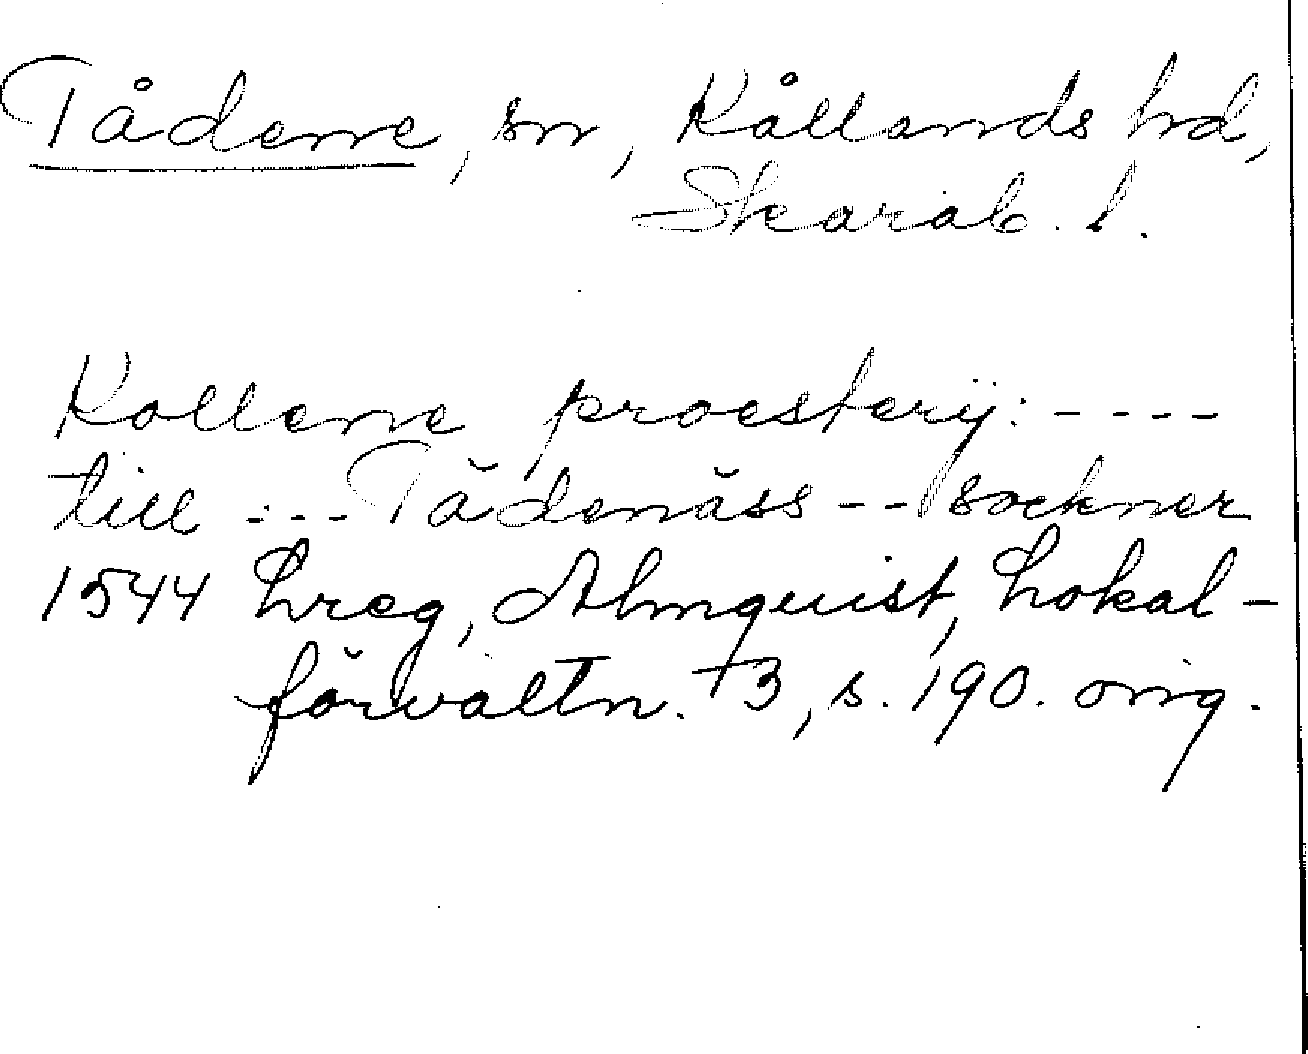 Tådene, sn, Kållands hd,
Skarab. l.
Kollene proesterÿ: ----
till --- Tådenäss -- sockner
1544 Lreg, Almquist, Lokal-
förvaltn. +3, s. 190. orig.